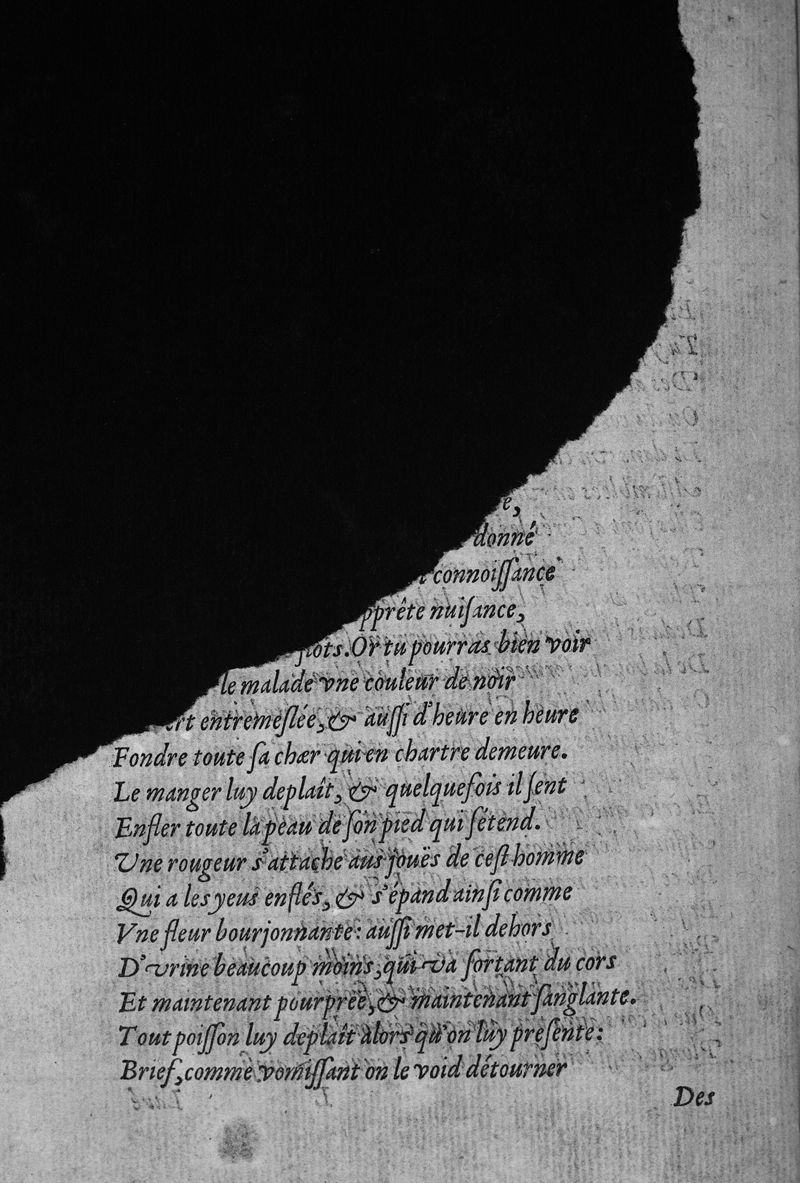 e,
donné
connoiſſance
pprête nuiſance,
flots. Or tu pourras bien voir
le malade vne couleur de noir
ert entremeſlée, & auſſi d'heure en heure
Fondre toute ſa chær qui en chartre demeure.
Le manger luy deplaît, & quelquefois il ſent
Enfler toute la peau de ſon pied qui ſétend.
Vne rougeur s'attache aus jouës de ceſt homme
Qui a les yeus enflés, & s'épand ainſi comme
Vne fleur bourjonnante: auſſi met-il dehors
D'vrine beaucoup moins, qui va ſortant du cors
Et maintenant pourprée, & maintenant ſanglante.
Tout poiſſon luy deplaît alors qu'on luy preſente:
Brief, comme vomiſſant on le void détourner
Des